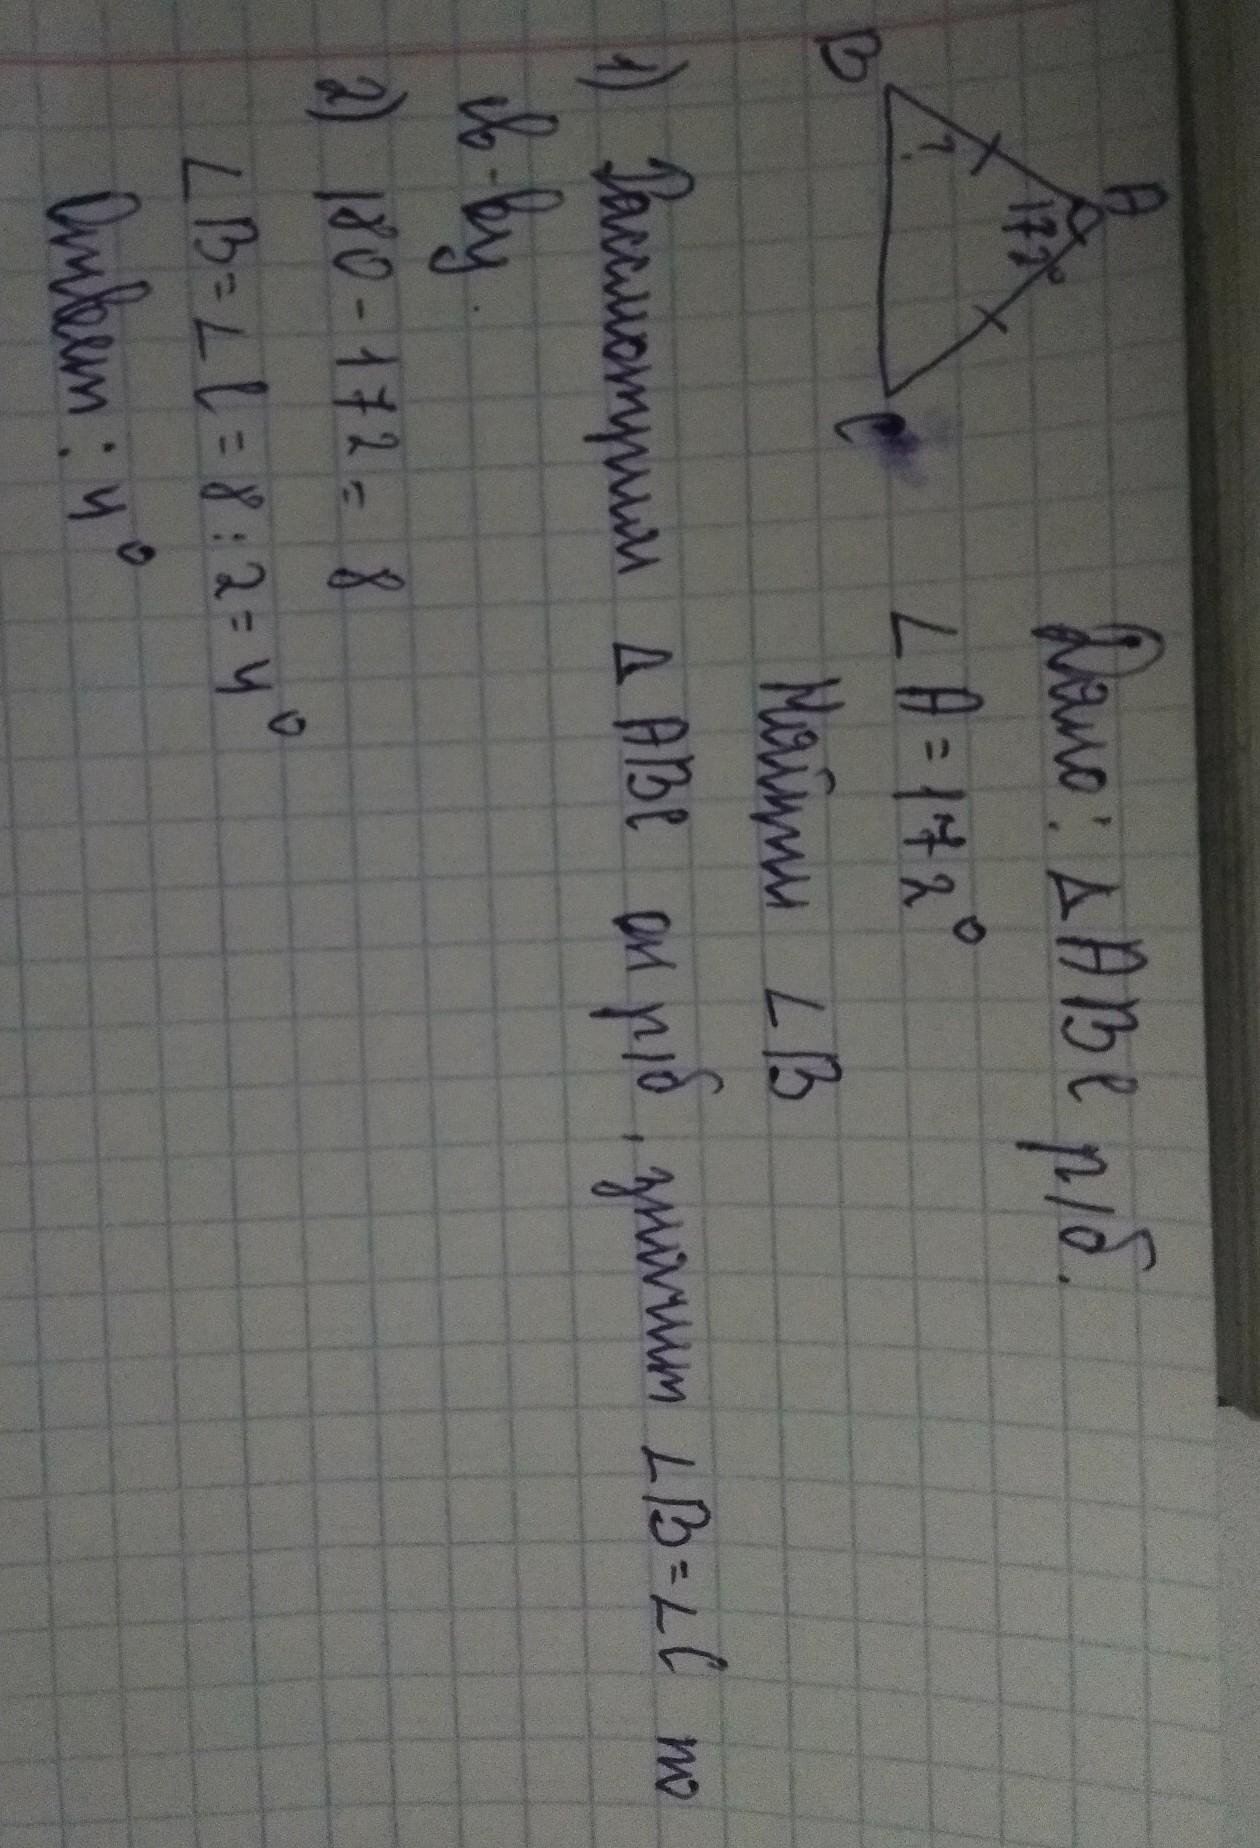 A
172°
?
B
C
Дано: Δ ABC р/б.
∠ A = 172°
Найти ∠ B
1) Рассмотрим Δ ABC он р/б, значит ∠B = ∠C по
св-ву.
2) 180 - 172 = 8
∠ B = ∠ C = 8 : 2 = 4°
Ответ: 4°